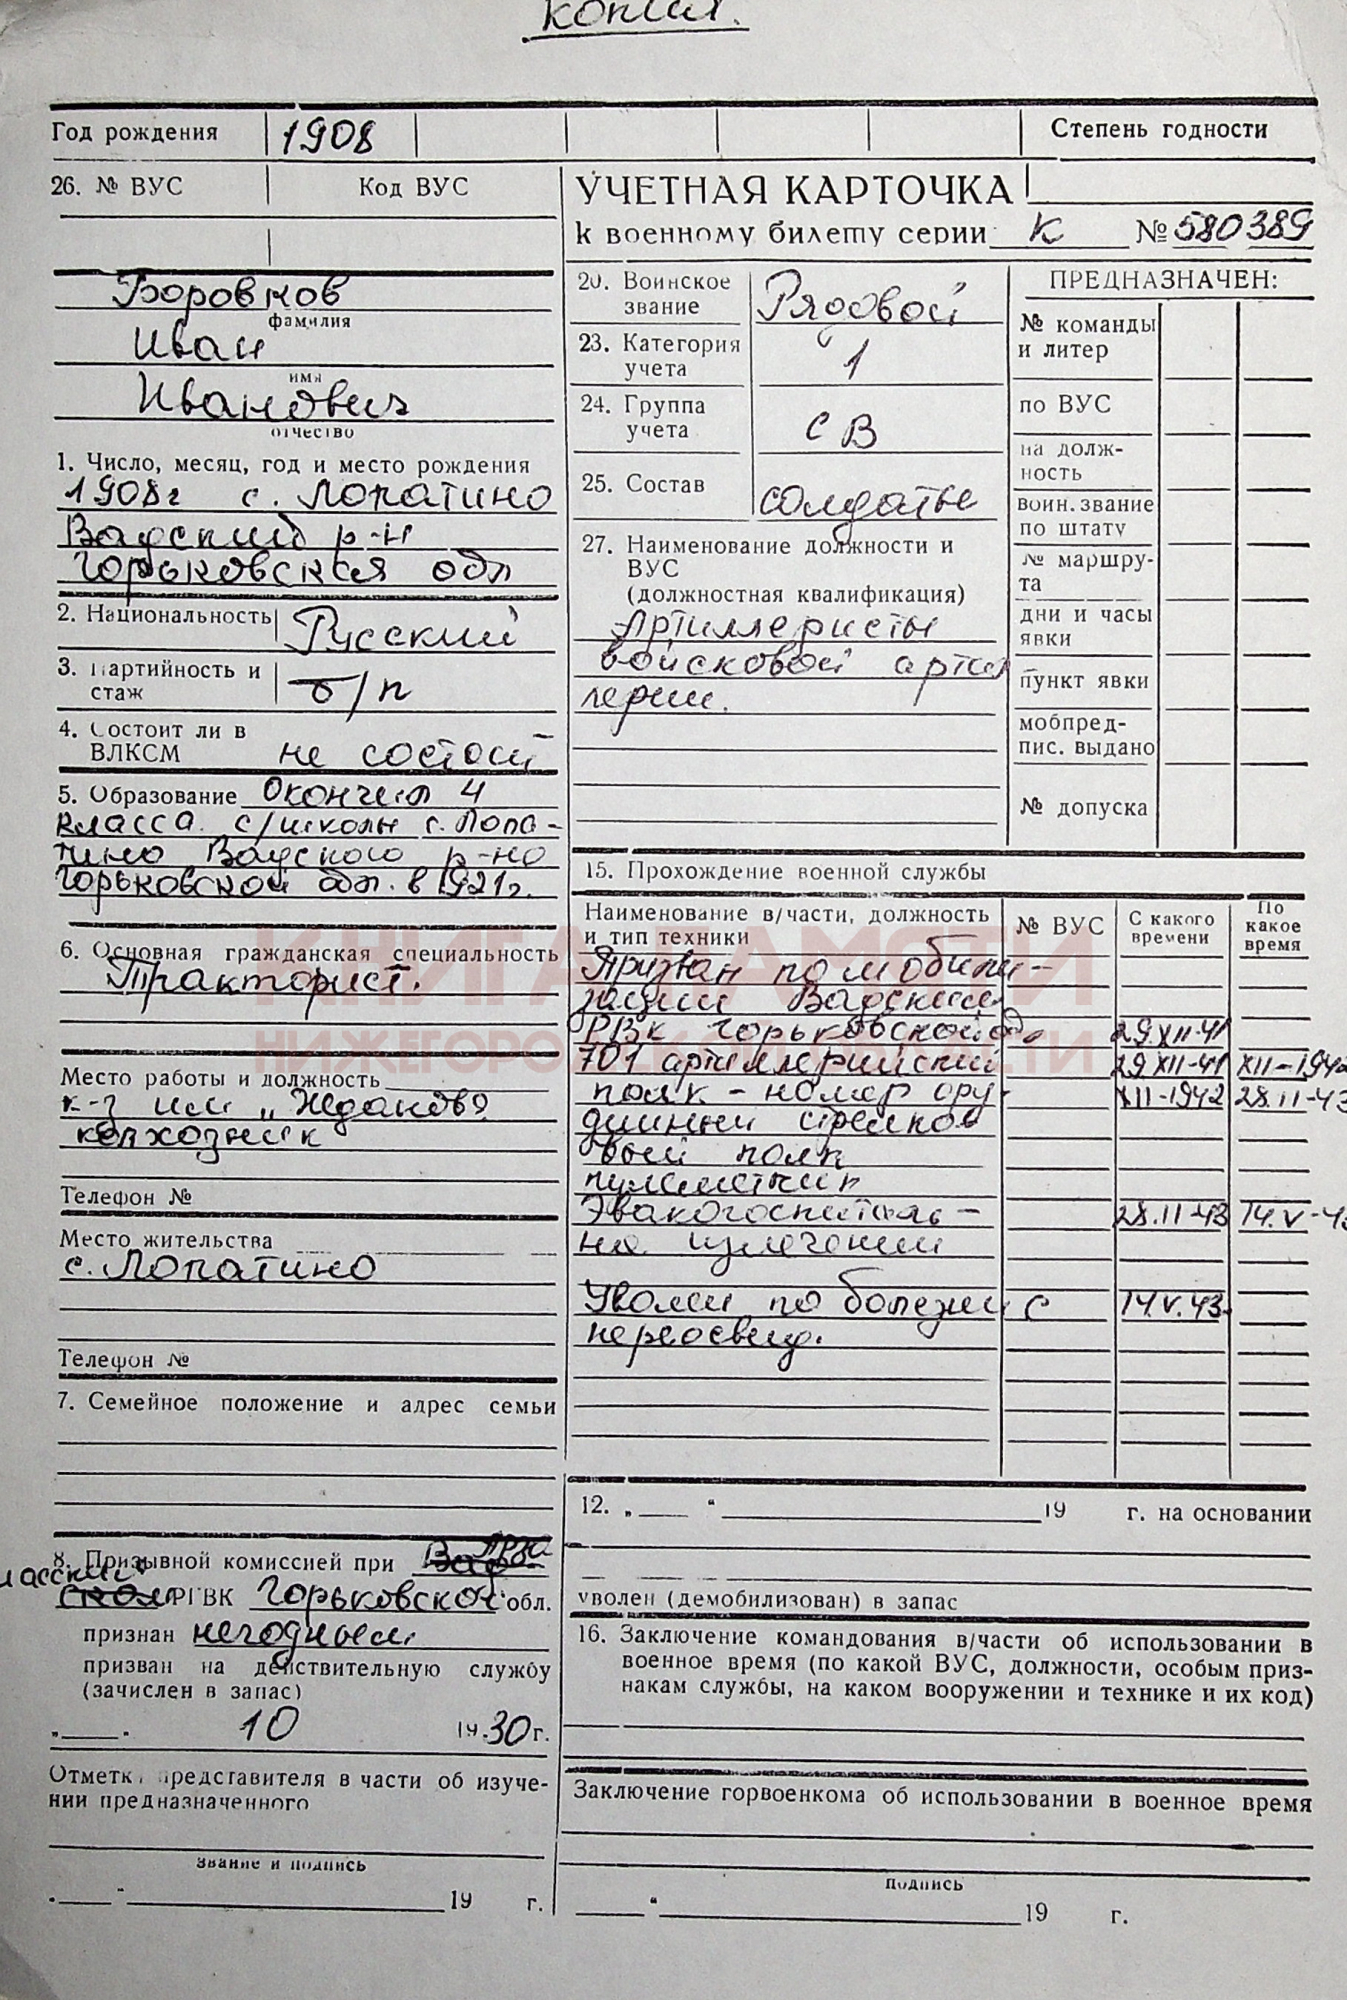 копия.
Год рождения 1908
Степень годности
26. № ВУС Код ВУС
УЧЕТНАЯ КАРТОЧКА
к военному билету серии К № 580389
Боровков
фамилия
Иван
имя
Иванович
отчество
1. Число, месяц, год и место рождения
1908г с. Лопатино
Вадский р-н
Горьковская обл
2. Национальность Русский
3. Партийность и стаж б/п
4. Состоит ли в ВЛКСМ не состоит
5. Образование Окончил 4
класса с/школы с. Лопа-
тино Вадского р-на
Горьковской обл. в 1921г.
6. Основная гражданская специальность
Тракторист.
Место работы и должность
к-з им „Жданова
колхозник
Телефон №
Место жительства
с. Лопатино
Телефон №
7. Семейное положение и адрес семьи
8. Призывной комиссией при
РГВК Горьковской обл.
признан негодным
призван на действительную службу
(зачислен в запас)
„ “ 10 19.30 г.
Отметка представителя в части об изуче-
нии предназначенного
Звание и подпись
„ “ 19 г.
20. Воинское звание Рядовой
23. Категория учета 1
24. Группа учета СВ
25. Состав солдаты
27. Наименование должности и
ВУС
(должностная квалификация)
Артиллеристы
войсковой артил
лерии.
ПРЕДНАЗНАЧЕН:
№ команды
и литер
по ВУС
на долж-
ность
воин. звание
по штату
№ маршру-
та
дни и часы
явки
пункт явки
мобпред-
пис. выдано
№ допуска
15. Прохождение военной службы
Наименование в/части, должность
и тип техники
№ ВУС
С какого
времени
По
какое
время
Призван по мобили-
зации Вадским
РВК Горьковской об. 29.XII-41
701 артиллерийский 29 XII-41 XII-1942
полк - номер ору- XII-1942 28.II-43
дийный стрелко
вый полк
пулеметчик
Эвакогоспиталь - 28.II-43 14.V-43
на излечении
Уволен по болезни с 14.V.43.
переосвид.
12. „ “ 19 г. на основании
уволен (демобилизован) в запас
16. Заключение командования в/части об использовании в
военное время (по какой ВУС, должности, особым приз-
накам службы, на каком вооружении и технике и их код)
Заключение горвоенкома об использовании в военное время
Подпись
“ 19 г.
КНИГА ПАМЯТИ
НИЖЕГОРОДСКОЙ ОБЛАСТИ